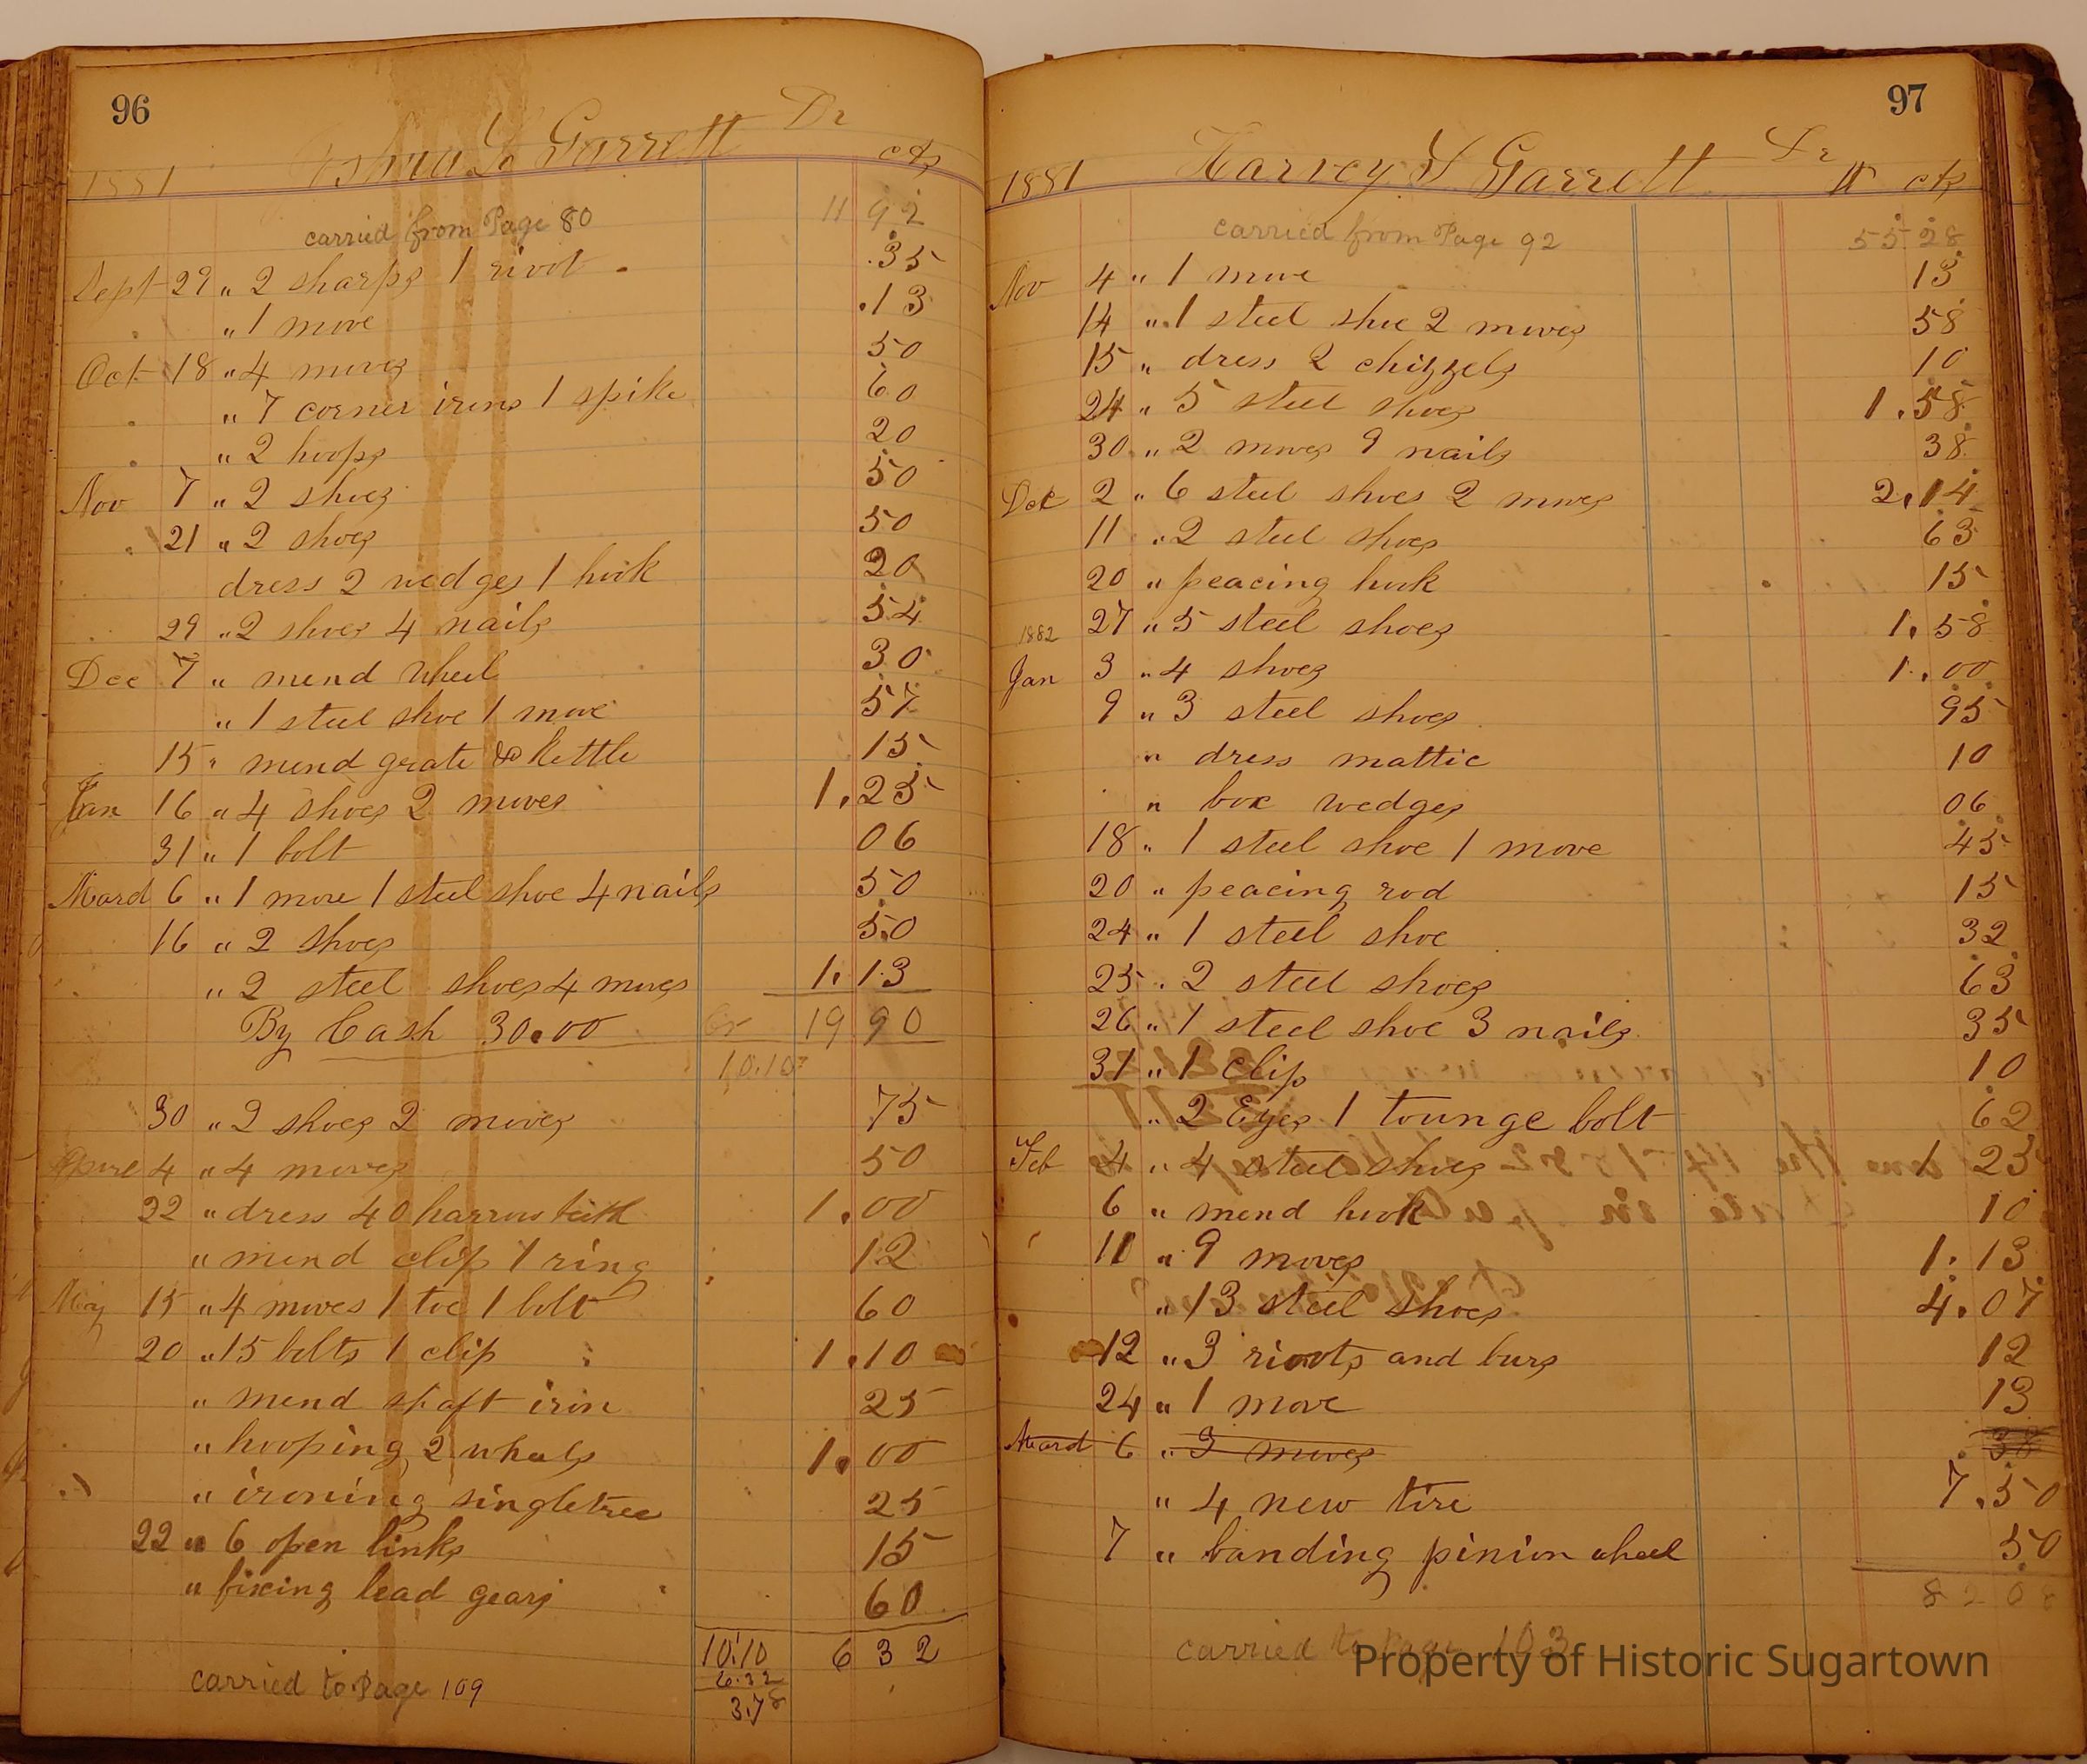 96
Joshua L Garrett Dr
1881 cts
carried from Page 80 11 92
Sept 29 " 2 sharps 1 rivot .35
" 1 move .13
Oct 18 " 4 moves 50
" 7 corner irens 1 spike 60
" 2 hoops 20
Nov 7 " 2 shoes 50
21 " 2 shoes 50
dress 2 wedges 1 hook 20
29 " 2 shoes 4 nails 54
Dec 7 " mend wheel 30
" 1 steel shoe 1 move 57
15 " mend grate & kettle 15
Jan 16 " 4 shoes 2 moves 1.25
31 " 1 bolt 06
March 6 " 1 move 1 steel shoe 4 nails 50
16 " 2 shoes 50
" 2 steel shoes 4 moves 1.13
By Cash 30.00 Cr 19 90
10.10
30 " 2 shoes 2 moves 75
4 " 4 moves 50
22 " dress 40 harrow teeth 1.00
" mend clip 1 ring 12
May 15 " 4 moves 1 toe 1 bolt 60
20 " 15 bolts 1 clip 1.10
" mend shaft iron 25
" hooping 2 wheels 1.00
" ironing singletree 25
22 " 6 open links 15
" fixing lead gears 60
10.10 6 32
6.32
carried to Page 109 3.78
97
Harvey S Garrett Dr
1881 cts
carried from Page 92 55 28
Nov 4 " 1 move 13
14 " 1 steel shoe 2 moves 58
15 " dress 2 chizzels 10
24 " 5 steel shoes 1.58
30 " 2 moves 9 nails 38
Dec 2 " 6 steel shoes 2 moves 2.14
11 " 2 steel shoes 63
20 " peacing hook 15
27 " 5 steel shoes 1.58
1882
Jan 3 " 4 shoes 1.00
9 " 3 steel shoes 95
" dress mattic 10
" box wedges 06
18 " 1 steel shoe 1 move 45
20 " peacing rod 15
24 " 1 steel shoe 32
25 " 2 steel shoes 63
26 " 1 steel shoe 3 nails 35
31 " 1 clip 10
" 2 Eyes 1 tounge bolt 62
Feb 4 " 4 steel shoes 1 25
6 " mend hook 10
11 " 9 moves 1.13
" 13 steel shoes 4.07
12 " 3 rivots and burs 12
24 " 1 move 13
March 6 " 3 moves 38
" 4 new tire 7.50
7 " banding pinion wheel 50
82 08
carried to Page 103
Property of Historic Sugartown